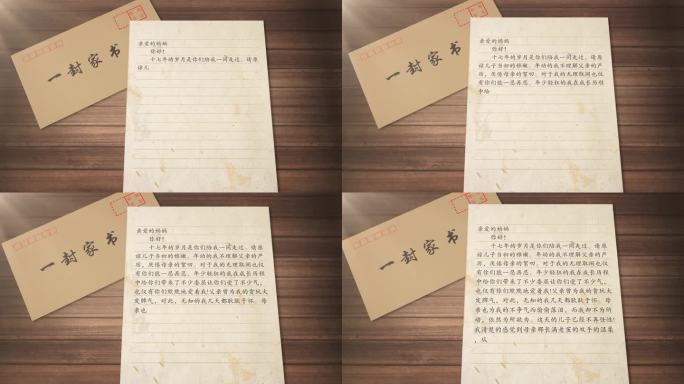 一封家书
亲爱的妈妈
你好！
十七年的岁月是你们陪我一同走过。请原
谅儿
一封家书
亲爱的妈妈
你好！
十七年的岁月是你们陪我一同走过。请原
谅儿子当初的稚嫩。年幼的我不理解父亲的严
厉，厌倦母亲的絮叨。对于我的无理取闹也仅
有你们能一忍再忍。年少轻狂的我在成长历程
中给
一封家书
亲爱的妈妈
你好！
十七年的岁月是你们陪我一同走过。请原
谅儿子当初的稚嫩。年幼的我不理解父亲的严
厉，厌倦母亲的絮叨。对于我的无理取闹也仅
有你们能一忍再忍。年少轻狂的我在成长历程
中给你们带来了不少委屈让你们受了不少气，
也仅有你们默默地爱着我!父亲曾为我的贪玩大
发脾气，对此，无知的我几天都耿耿于怀。母
亲也
一封家书
亲爱的妈妈
你好！
十七年的岁月是你们陪我一同走过。请原
谅儿子当初的稚嫩。年幼的我不理解父亲的严
厉，厌倦母亲的絮叨。对于我的无理取闹也仅
有你们能一忍再忍。年少轻狂的我在成长历程
中给你们带来了不少委屈让你们受了不少气，
也仅有你们默默地爱着我!父亲曾为我的贪玩大
发脾气，对此，无知的我几天都耿耿于怀。母
亲也为我的不争气而偷偷落泪，而我却不为所
动，依然为所欲为。这天的儿子已经不再任性!
我清楚的感觉到母亲那长满老茧的双手的温柔
，从